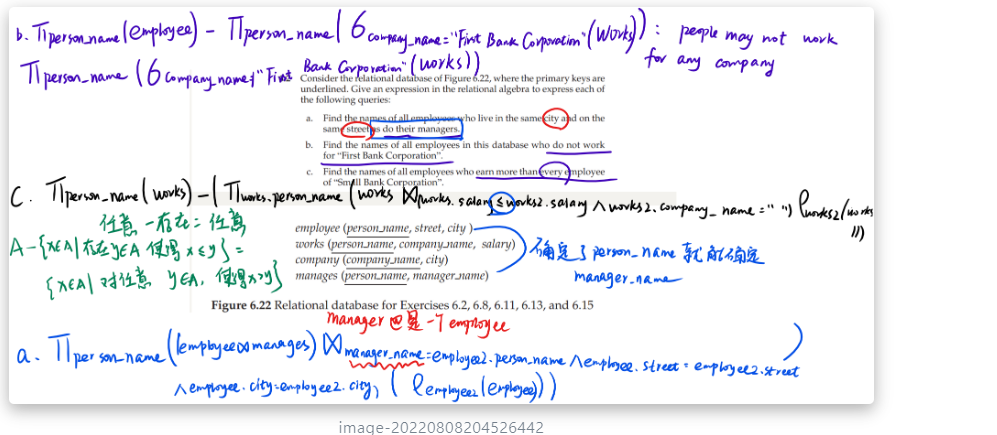 b. Πperson_name(employee) − Πperson_name(σcompany_name="First Bank Corporation"(works)): people may not work
for any company
Πperson_name(σcompany_name≠"First Bank Corporation"(works))
Consider the relational database of Figure 6.22, where the primary keys are
underlined. Give an expression in the relational algebra to express each of
the following queries:
a. Find the names of all employees who live in the same city and on the
same street as do their managers.
b. Find the names of all employees in this database who do not work
for “First Bank Corporation”.
c. Find the names of all employees who earn more than every employee
of “Small Bank Corporation”.
C. Πperson_name(works) − (Πworks.person_name(works ⋈works.salary ≤ works2.salary ∧ works2.company_name=" " ρworks2(works
))
任意 - 存在 = 任意
A-{x∈A|存在y∈A 使得 x≤y} =
{x∈A| 对任意 y∈A, 使得x>y}
employee (person_name, street, city )
works (person_name, company_name, salary)
company (company_name, city)
manages (person_name, manager_name)
确定了person_name 就能确定
manager_name
Figure 6.22 Relational database for Exercises 6.2, 6.8, 6.11, 6.13, and 6.15
manager 也是一个 employee
a. Πperson_name((employee⋈manages) ⋈manager_name=employee2.person_name ∧employee.street = employee2.street
∧employee.city=employee2.city) (ρemployee2(employee)))
image-20220808204526442